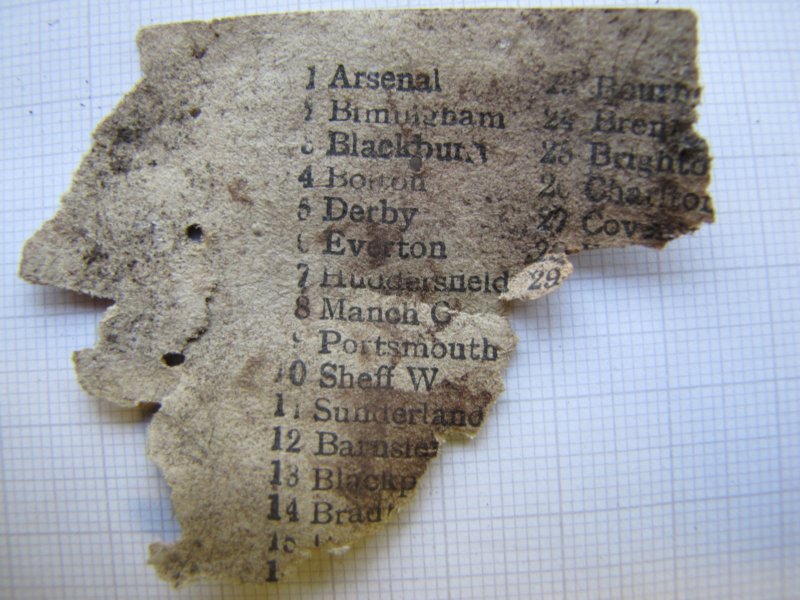 1 Arsenal 23 Bourn
2 Birmingham 24 Bren
3 Blackburn 25 Brighto
4 Bolton 26 Charlton
5 Derby 27 Cove
6 Everton 28
7 Huddersfield 29
8 Manch C
9 Portsmouth
10 Sheff W
11 Sunderland
12 Barnsle
13 Blackp
14 Brad
15
1